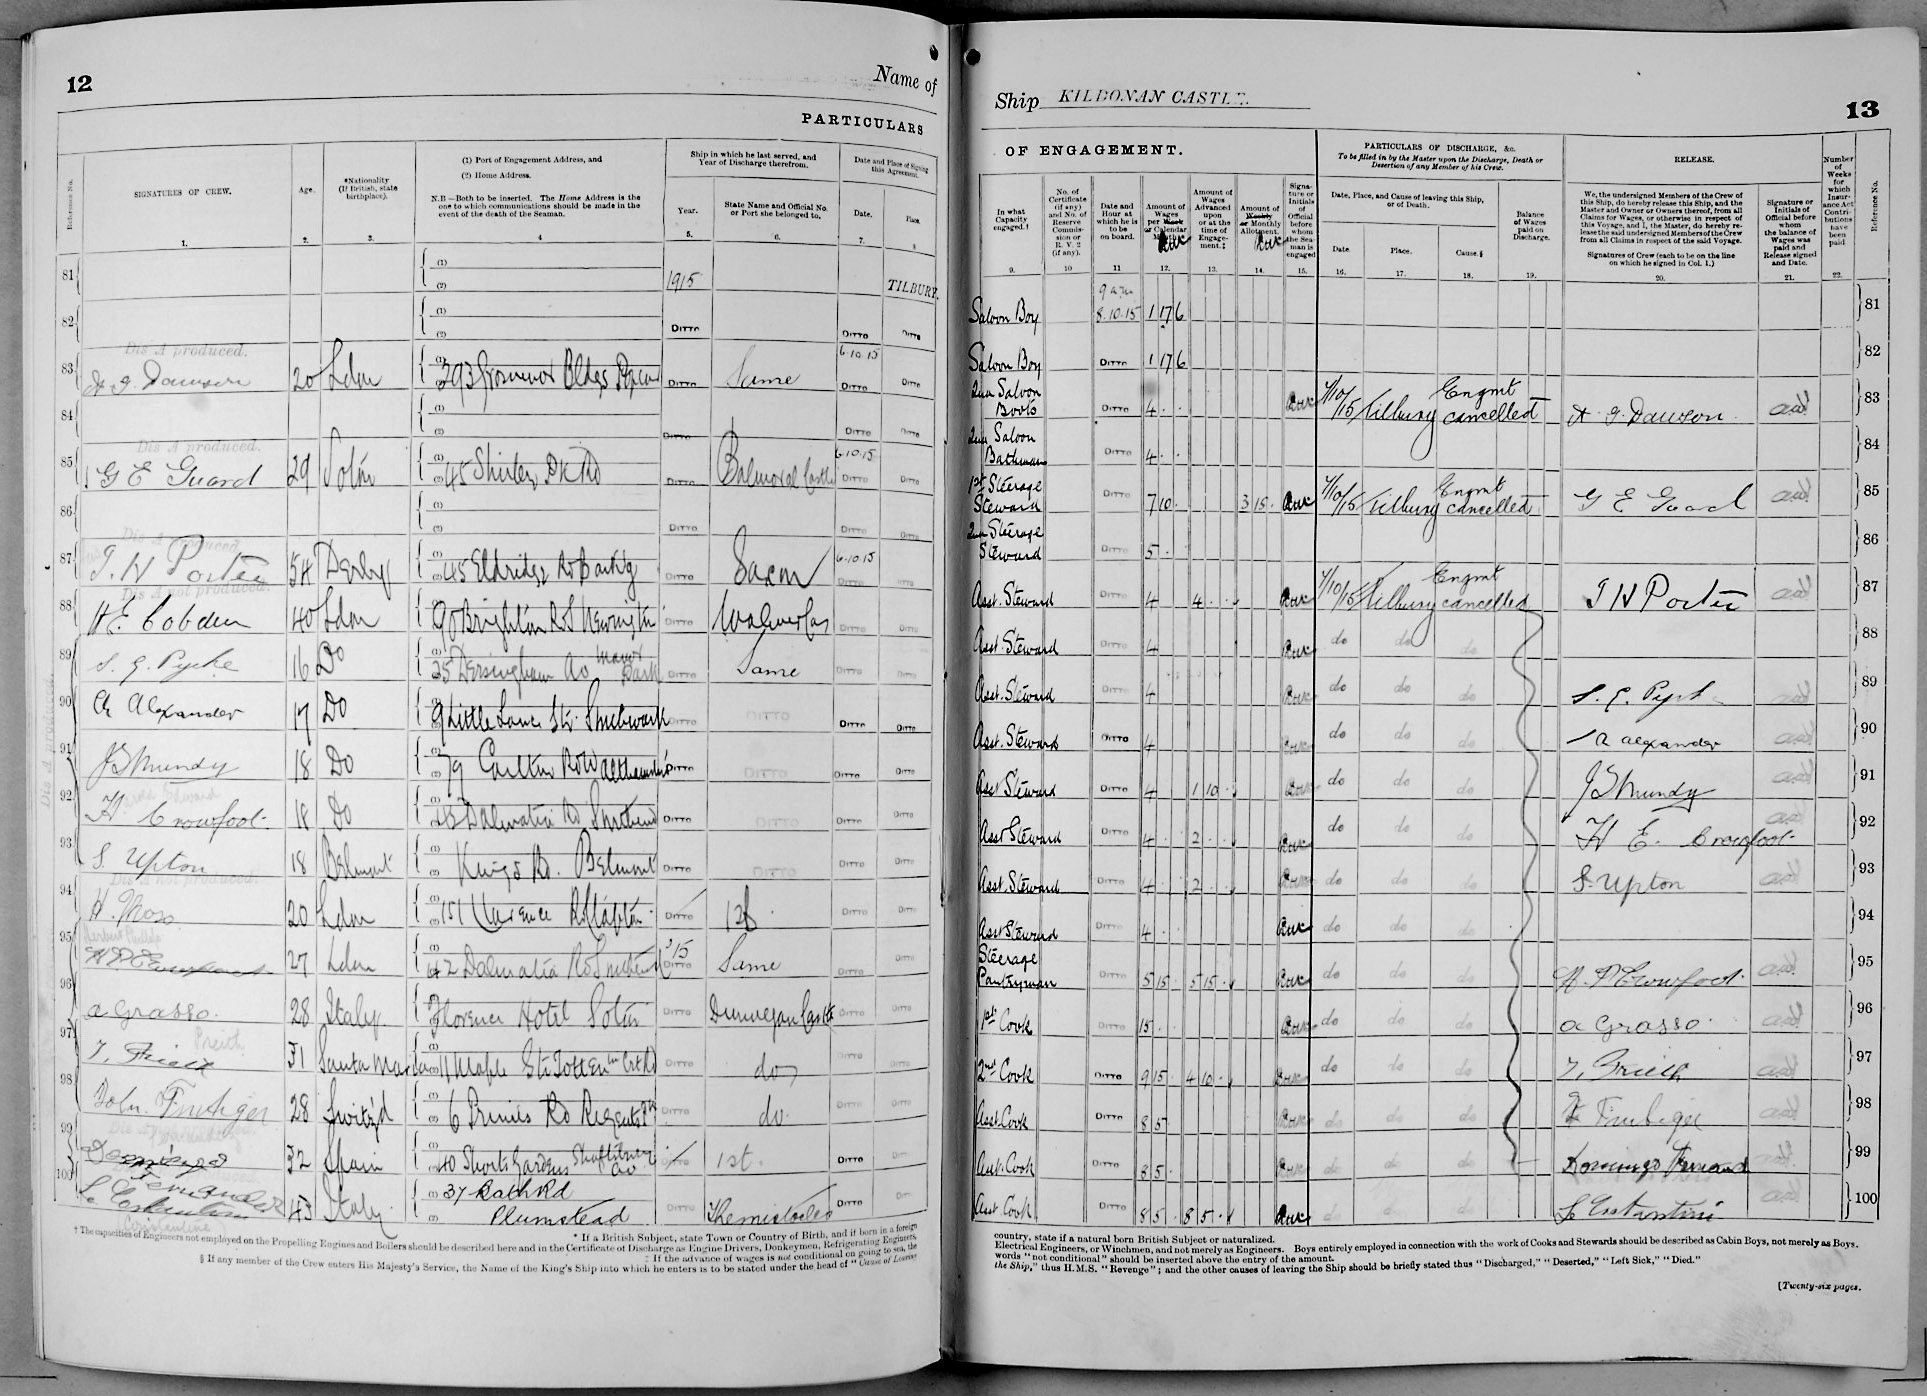 12
Name of
PARTICULARS
Reference No.
SIGNATURES OF CREW.
Age.
*Nationality
(If British, state
birthplace).
(1) Port of Engagement Address, and
(2) Home Address.
N.B—Both to be inserted. The Home Address is the
one to which communications should be made in the
event of the death of the Seaman.
Ship in which he last served, and
Year of Discharge therefrom.
Year.
State Name and Official No.
or Port she belonged to.
Date and Place of Signing
this Agreement.
Date.
Place.
1. 2. 3. 4 5. 6. 7. 8
81 (1) (2) 1915 TILBURY.
82 (1) (2) DITTO DITTO DITTO
Dis A produced.
83 20 Ldn 293 Grosvenor Bldgs DITTO Same 6.10.15 DITTO DITTO
84 (1) (2) DITTO DITTO DITTO
Dis A produced.
85 G E Guard 29 Soton 45 Shirley Pk Rd DITTO Balmoral Castle 6.10.15 DITTO DITTO
86 (1) (2) DITTO DITTO DITTO
Dis A produced.
87 T. H Porter 54 Derby 45 Eldridge Rd Barkg DITTO Saxon 6.10.15 DITTO DITTO
Dis A not produced.
88 H E. Cobden 40 Ldn 90 Brighton Rd S Newington DITTO DITTO DITTO
89 S. G. Pyke 16 Do 35 Dersingham Av Manor Park DITTO Same DITTO DITTO
90 A Alexander 17 Do 9 Little Lane St. Southwark DITTO DITTO DITTO DITTO
91 J S Mundy 18 Do 79 Carlton Rd Walthamstow DITTO DITTO DITTO DITTO
92 H. Crowfoot 18 Do Dalmatia Rd Southend DITTO DITTO DITTO DITTO
93 S. Upton 18 Belmont Kings Rd. Belmont DITTO DITTO DITTO DITTO
Dis A not produced.
94 H. Moss 20 Ldn 151 Clarence Rd Clapton DITTO 1st DITTO DITTO
Herbert Phillip
95 H P Crowfoot 27 Ldn 42 Dalmatia Rd Southend 15 DITTO Same DITTO DITTO
96 A Grasso. 28 Italy. Florence Hotel Soton DITTO Dunvegan Castle DITTO DITTO
97 Santa Maria 11 Maple St Tottenm Crt Rd DITTO do DITTO DITTO
98 28 Switz'd 6 Princes Rd Regents Pk DITTO do. DITTO DITTO
Dis A not produced.
99 Domingo Fernandez 32 Spain 40 Shorts Gardens Shaftesbury Av 1st. DITTO DITTO
100 43 Italy 37 Bath Rd
Plumstead DITTO Themistocles DITTO
* If a British Subject, state Town or Country of Birth, and if born in a foreign
† The capacities of Engineers not employed on the Propelling Engines and Boilers should be described here and in the Certificate of Discharge as Engine Drivers, Donkeymen, Refrigerating Engineers,
‡ If the advance of wages is not conditional on going to sea, the
§ If any member of the Crew enters His Majesty's Service, the Name of the King's Ship into which he enters is to be stated under the head of "Cause of Leaving
Ship KILDONAN CASTLE.
13
OF ENGAGEMENT.
In what
Capacity
engaged.†
No. of
Certificate
(if any)
and No. of
Reserve
Commis-
sion or
R.V. 2
(if any).
Date and
Hour at
which he is
to be
on board.
Amount of
Wages
per Week
or Calendar
Month.
Amount of
Wages
Advanced
upon
or at the
time of
Engage-
ment.‡
Amount of
Weekly
or Monthly
Allotment.
Signa-
ture or
Initials
of
Official
before
whom
the Sea-
man is
engaged
PARTICULARS OF DISCHARGE, &c.
To be filled in by the Master upon the Discharge, Death or
Desertion of any Member of his Crew.
Date, Place, and Cause of leaving this Ship,
or of Death.
Date.
Place.
Cause.§
Balance
of Wages
paid on
Discharge.
RELEASE.
We, the undersigned Members of the Crew of
this Ship, do hereby release this Ship, and the
Master and Owner or Owners thereof, from all
Claims for Wages, or otherwise in respect of
this Voyage, and I, the Master, do hereby re-
lease the said undersigned Members of the Crew
from all Claims in respect of the said Voyage.
Signatures of Crew (each to be on the line
on which he signed in Col. 1.)
Signature or
Initials of
Official before
whom
the balance of
Wages was
paid and
Release signed
and Date.
Number
of
Weeks
for
which
Insur-
ance Act
Contri-
butions
have
been
paid
Reference No.
9. 10 11 12. 13. 14. 15. 16. 17. 18. 19. 20. 21. 22.
Saloon Boy 9 a.m. 8.10.15 1 17 6 81
Saloon Boy DITTO 1 17 6 82
2nd Saloon Boots DITTO 4 7/10/15 Tilbury Engmt cancelled 83
2nd Saloon Bathman DITTO 4 84
1st Steerage Steward DITTO 7 10 3 15 7/10/15 Tilbury Engmt cancelled G E Guard 85
2nd Steerage Steward DITTO 5 86
Asst. Steward DITTO 4 4 7/10/15 Tilbury Engmt cancelled T H Porter 87
Asst. Steward DITTO 4 do do do 88
Asst. Steward DITTO 4 do do do S. G. Pyke 89
Asst. Steward DITTO 4 do do do A Alexander 90
Asst Steward DITTO 4 1 10 do do do J S Mundy 91
Asst Steward DITTO 4 2 do do do H E. Crowfoot 92
Asst. Steward DITTO 4 2 do do do S. Upton 93
Asst Steward 4 do do do 94
Steerage Pantryman DITTO 5 15 5 15 do do do H. P Crowfoot 95
1st Cook DITTO 15 do do do A Grasso. 96
2nd Cook DITTO 9 15 4 10 do do do 97
Asst Cook DITTO 8 5 do do do 98
Asst. Cook DITTO 8 5 do do do 99
Asst Cook DITTO 8 5 8 5 do do do 100
country, state if a natural born British Subject or naturalized.
Electrical Engineers, or Winchmen, and not merely as Engineers. Boys entirely employed in connection with the work of Cooks and Stewards should be described as Cabin Boys, not merely as Boys.
words "not conditional" should be inserted above the entry of the amount.
the Ship," thus H.M.S. "Revenge"; and the other causes of leaving the Ship should be briefly stated thus "Discharged," "Deserted," "Left Sick," "Died."
[Twenty-six pages.